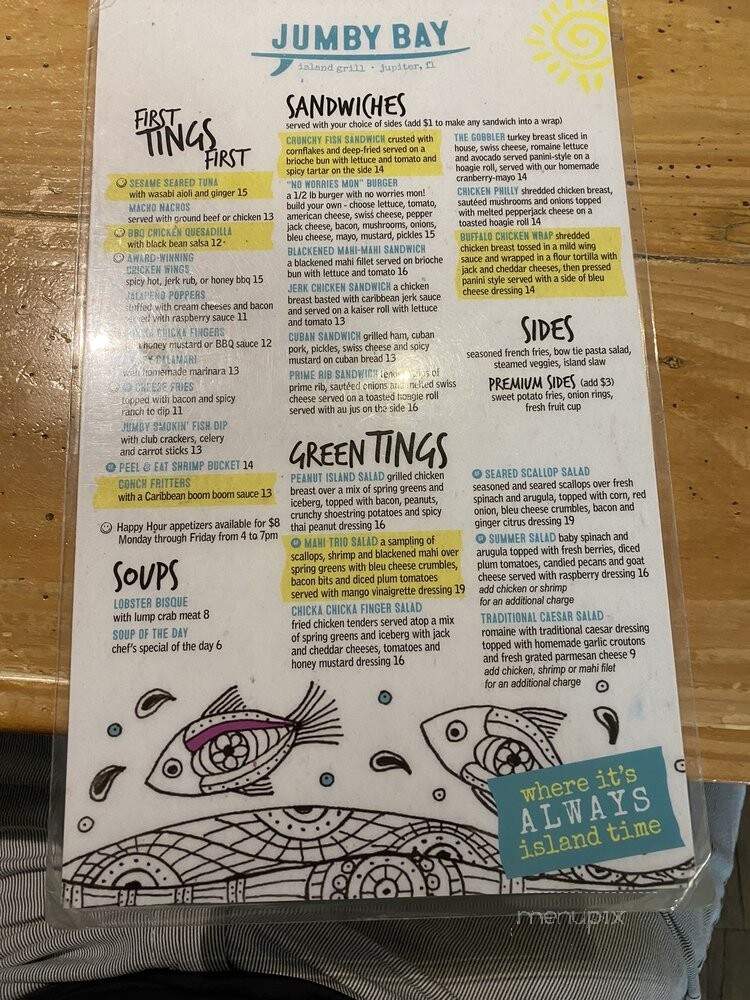 JUMBY BAY
island grill · jupiter, fl
FIRST
TINGS
FIRST
SESAME SEARED TUNA
with wasabi aioli and ginger 15
MACHO NACHOS
served with ground beef or chicken 13
BBQ CHICKEN QUESADILLA
with black bean salsa 12
AWARD-WINNING
CHICKEN WINGS
spicy hot, jerk rub, or honey bbq 15
JALAPEÑO POPPERS
stuffed with cream cheeses and bacon
served with raspberry sauce 11
CHICKA FINGERS
honey mustard or BBQ sauce 12
CALAMARI
with homemade marinara 13
CHEESE FRIES
topped with bacon and spicy
ranch to dip 11
JUMBY SMOKIN' FISH DIP
with club crackers, celery
and carrot sticks 13
GF PEEL & EAT SHRIMP BUCKET 14
CONCH FRITTERS
with a Caribbean boom boom sauce 13
Happy Hour appetizers available for $8
Monday through Friday from 4 to 7pm
SOUPS
LOBSTER BISQUE
with lump crab meat 8
SOUP OF THE DAY
chef's special of the day 6
SANDWICHES
served with your choice of sides (add $1 to make any sandwich into a wrap)
CRUNCHY FISH SANDWICH crusted with
cornflakes and deep-fried served on a
brioche bun with lettuce and tomato and
spicy tartar on the side 14
"NO WORRIES MON" BURGER
a 1/2 lb burger with no worries mon!
build your own - choose lettuce, tomato,
american cheese, swiss cheese, pepper
jack cheese, bacon, mushrooms, onions,
bleu cheese, mayo, mustard, pickles 15
BLACKENED MAHI-MAHI SANDWICH
a blackened mahi fillet served on brioche
bun with lettuce and tomato 16
JERK CHICKEN SANDWICH a chicken
breast basted with caribbean jerk sauce
and served on a kaiser roll with lettuce
and tomato 13
CUBAN SANDWICH grilled ham, cuban
pork, pickles, swiss cheese and spicy
mustard on cuban bread 13
PRIME RIB SANDWICH of
prime rib, sautéed onions and melted swiss
cheese served on a toasted hoagie roll
served with au jus on the side 16
THE GOBBLER turkey breast sliced in
house, swiss cheese, romaine lettuce
and avocado served panini-style on a
hoagie roll, served with our homemade
cranberry-mayo 14
CHICKEN PHILLY shredded chicken breast,
sautéed mushrooms and onions topped
with melted pepperjack cheese on a
toasted hoagie roll 14
BUFFALO CHICKEN WRAP shredded
chicken breast tossed in a mild wing
sauce and wrapped in a flour tortilla with
jack and cheddar cheeses, then pressed
panini style served with a side of bleu
cheese dressing 14
SIDES
seasoned french fries, bow tie pasta salad,
steamed veggies, island slaw
PREMIUM SIDES (add $3)
sweet potato fries, onion rings,
fresh fruit cup
GREEN TINGS
PEANUT ISLAND SALAD grilled chicken
breast over a mix of spring greens and
iceberg, topped with bacon, peanuts,
crunchy shoestring potatoes and spicy
thai peanut dressing 16
GF MAHI TRIO SALAD a sampling of
scallops, shrimp and blackened mahi over
spring greens with bleu cheese crumbles,
bacon bits and diced plum tomatoes
served with mango vinaigrette dressing 19
CHICKA CHICKA FINGER SALAD
fried chicken tenders served atop a mix
of spring greens and iceberg with jack
and cheddar cheeses, tomatoes and
honey mustard dressing 16
GF SEARED SCALLOP SALAD
seasoned and seared scallops over fresh
spinach and arugula, topped with corn, red
onion, bleu cheese crumbles, bacon and
ginger citrus dressing 19
GF SUMMER SALAD baby spinach and
arugula topped with fresh berries, diced
plum tomatoes, candied pecans and goat
cheese served with raspberry dressing 16
add chicken or shrimp
for an additional charge
TRADITIONAL CAESAR SALAD
romaine with traditional caesar dressing
topped with homemade garlic croutons
and fresh grated parmesan cheese 9
add chicken, shrimp or mahi filet
for an additional charge
where it's
ALWAYS
island time
menupix